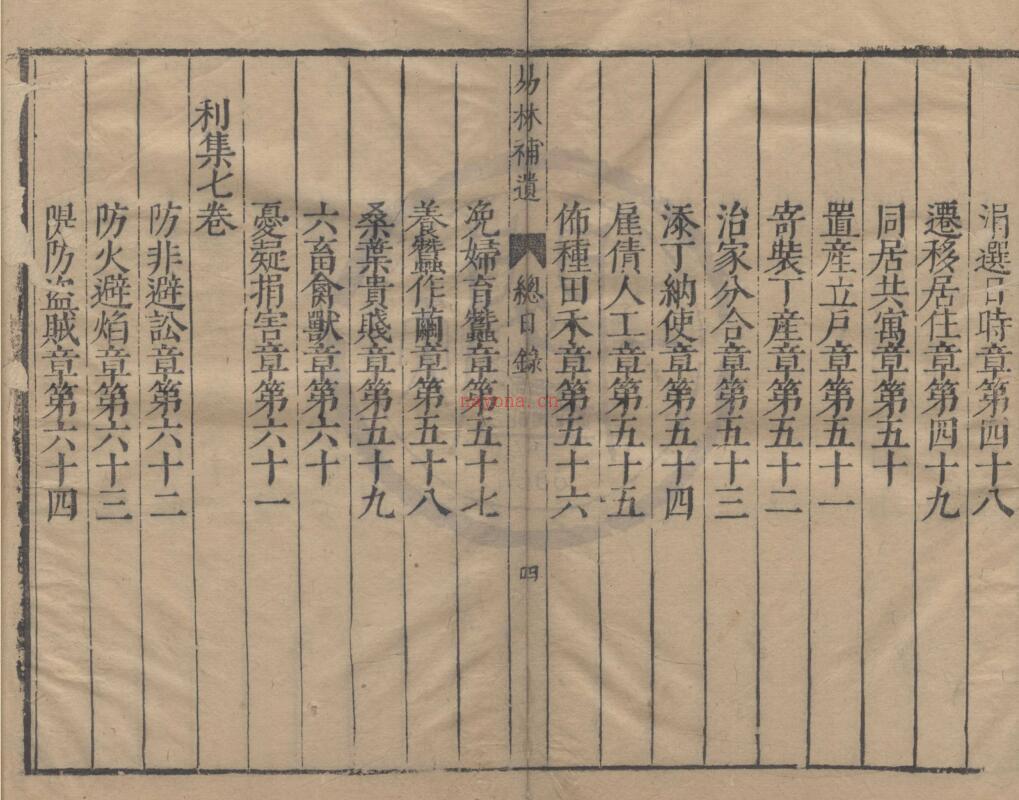 涓選日時章第四十八
遷移居住章第四十九
同居共寓章第五十
置產立戶章第五十一
寄裝丁產章第五十二
治家分合章第五十三
添丁納使章第五十四
雇倩人工章第五十五
佈種田禾章第五十六
易林補遺 總目錄 四
浼婦育蠶章第五十七
養蠶作繭章第五十八
桑葉貴賤章第五十九
六畜禽獸章第六十
憂疑捐害章第六十一
利集七卷
防非避訟章第六十二
防火避焰章第六十三
隄防盜賊章第六十四
nayona.cn